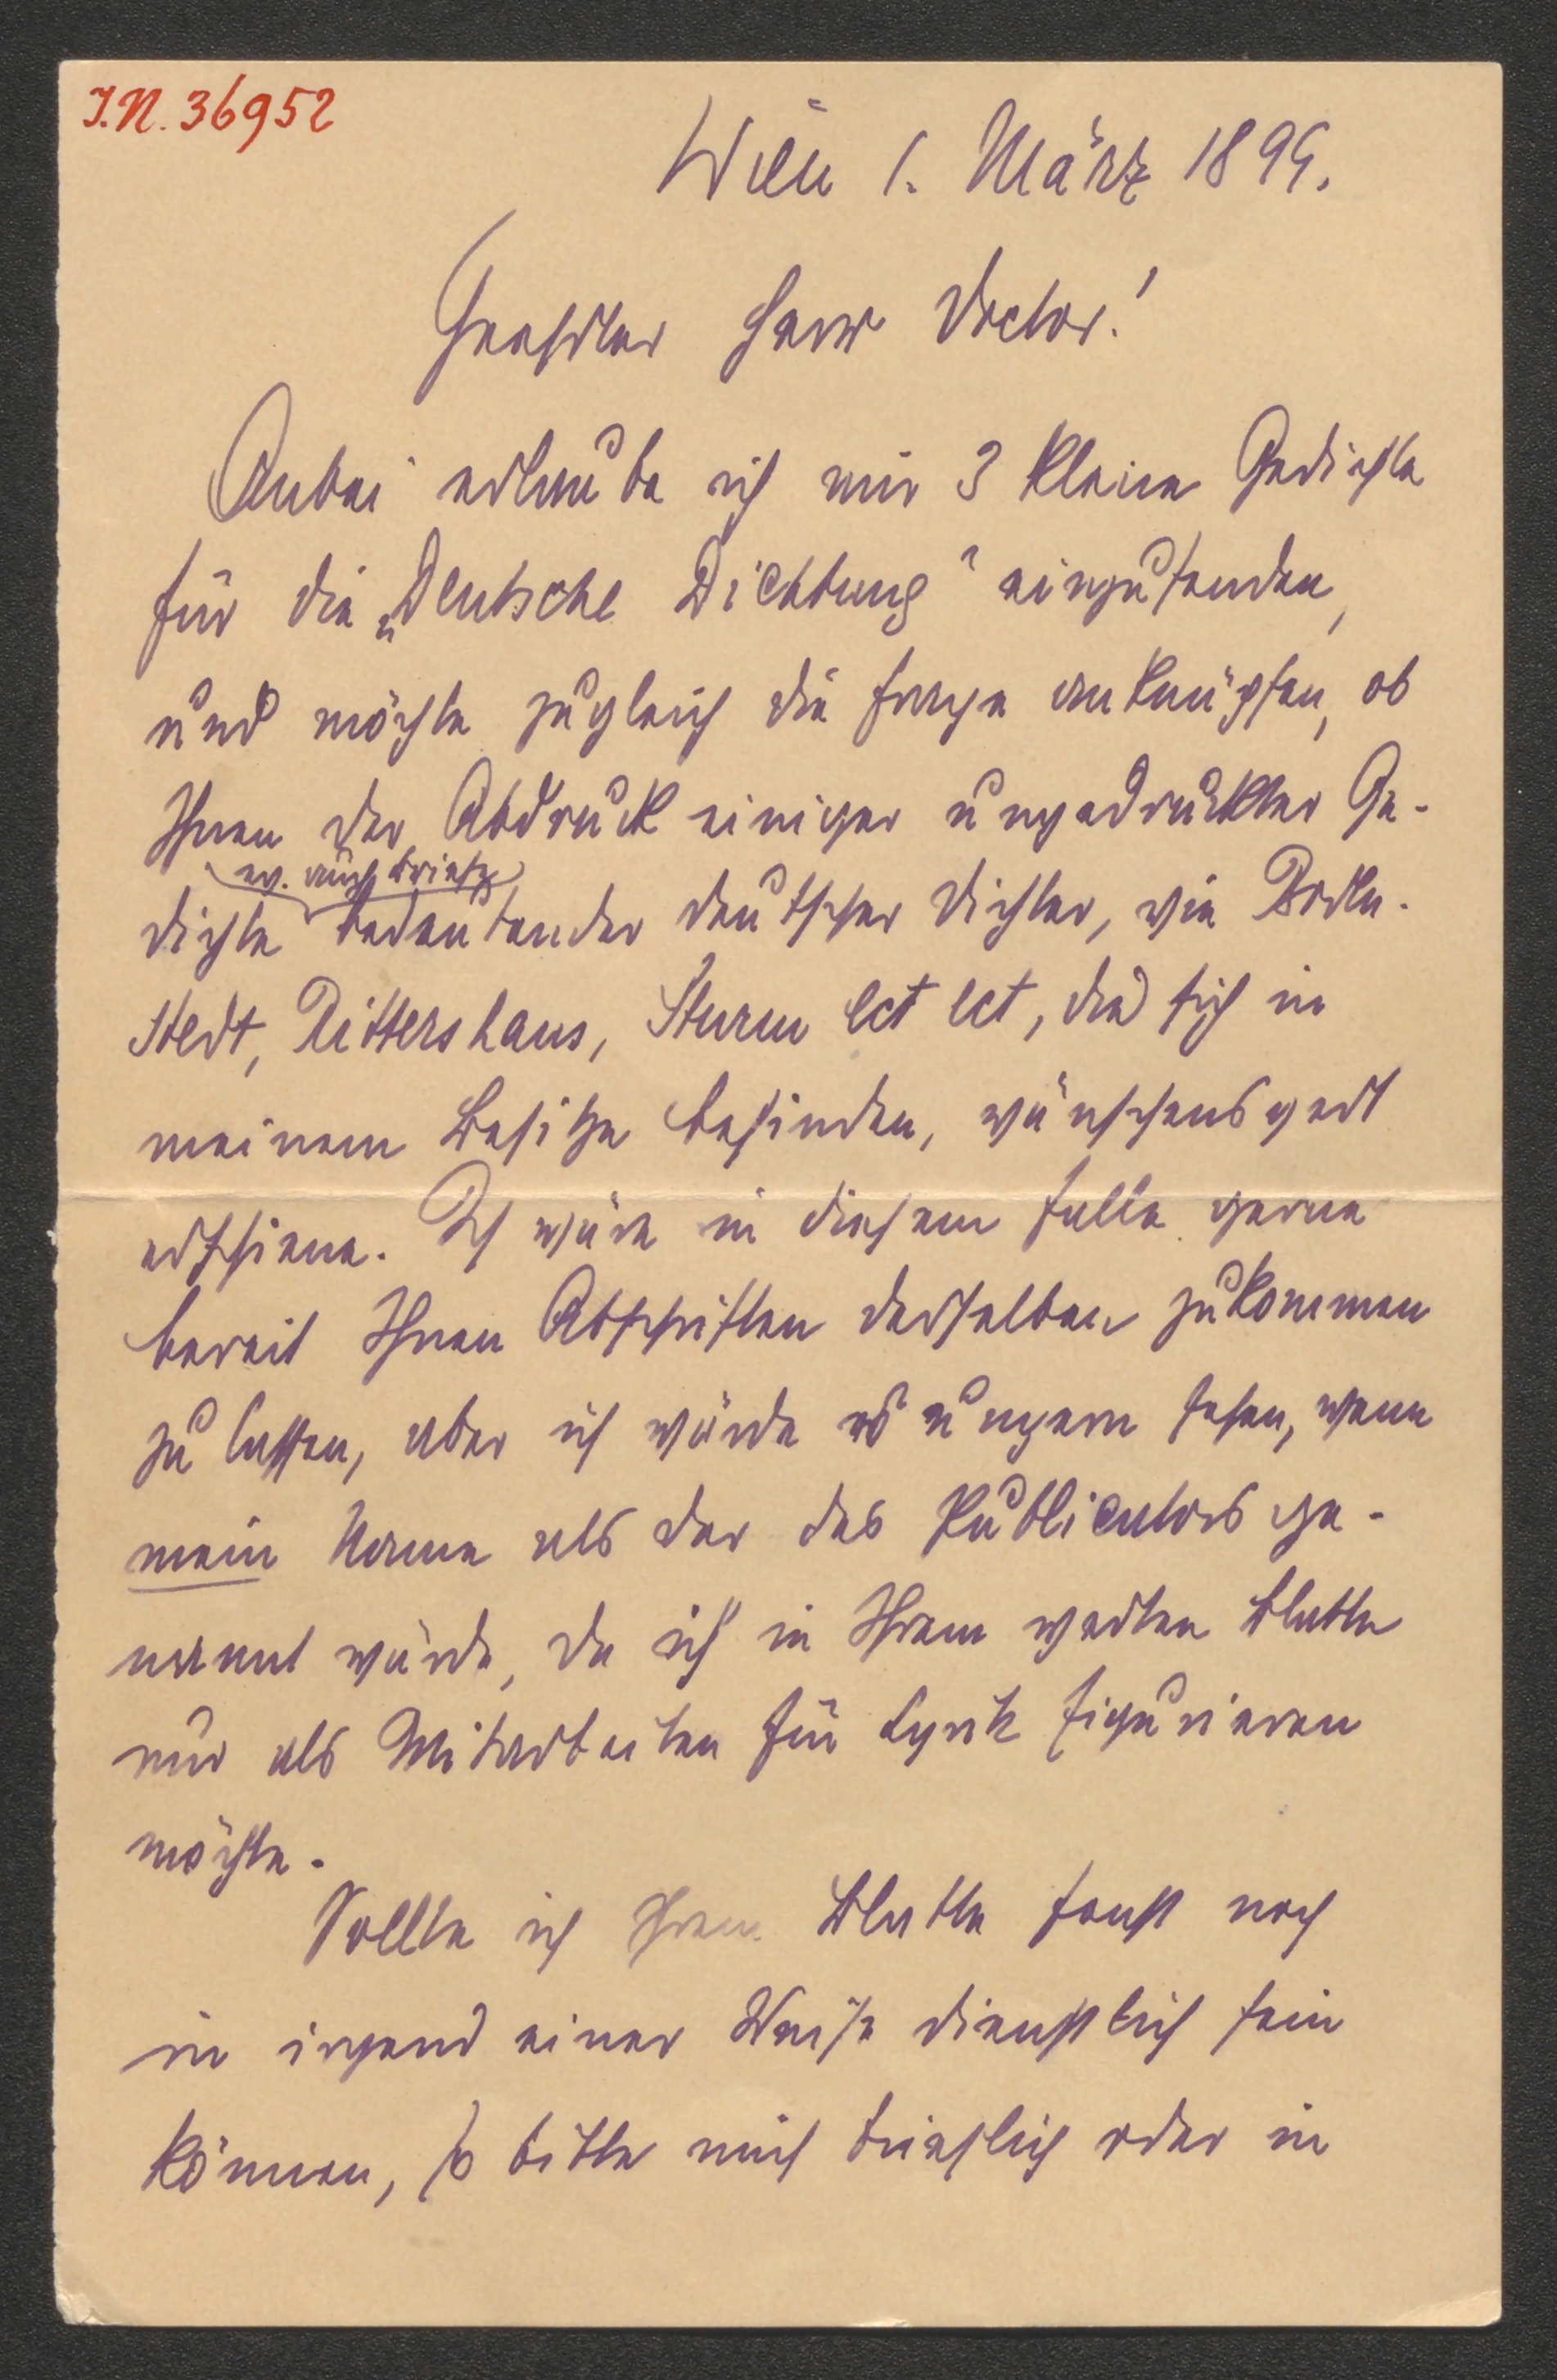 I.N. 36952
Wien 1. März 1899.
Geehrter Herr Doctor!
Anbei erlaube ich mir 3 kleine Gedichte
für die „Deutsche Dichtung“ einzusenden,
und möchte zugleich die Frage anknüpfen, ob
Ihnen der Abdruck einiger ungedruckter Ge-
ev. auch Briefe
dichte bedeutender deutscher Dichter, wie Boden-
stedt, Rittershaus, Sturm ect ect, die sich in
meinem Besitze befinden, wünschenswert
erschiene. Ich wäre in diesem Falle gerne
bereit Ihnen Abschriften derselben zukommen
zu lassen, aber ich würde es ungern sehen, wenn
mein Name als der des Publicators ge-
nannt würde, da ich in Ihrem werten Blatte
nur als Mitarbeiter für Lyrik figurieren
möchte.
Sollte ich Ihrem Blatte sonst noch
in irgend einer Weise dienstlich sein
können, so bitte mich brieflich oder in